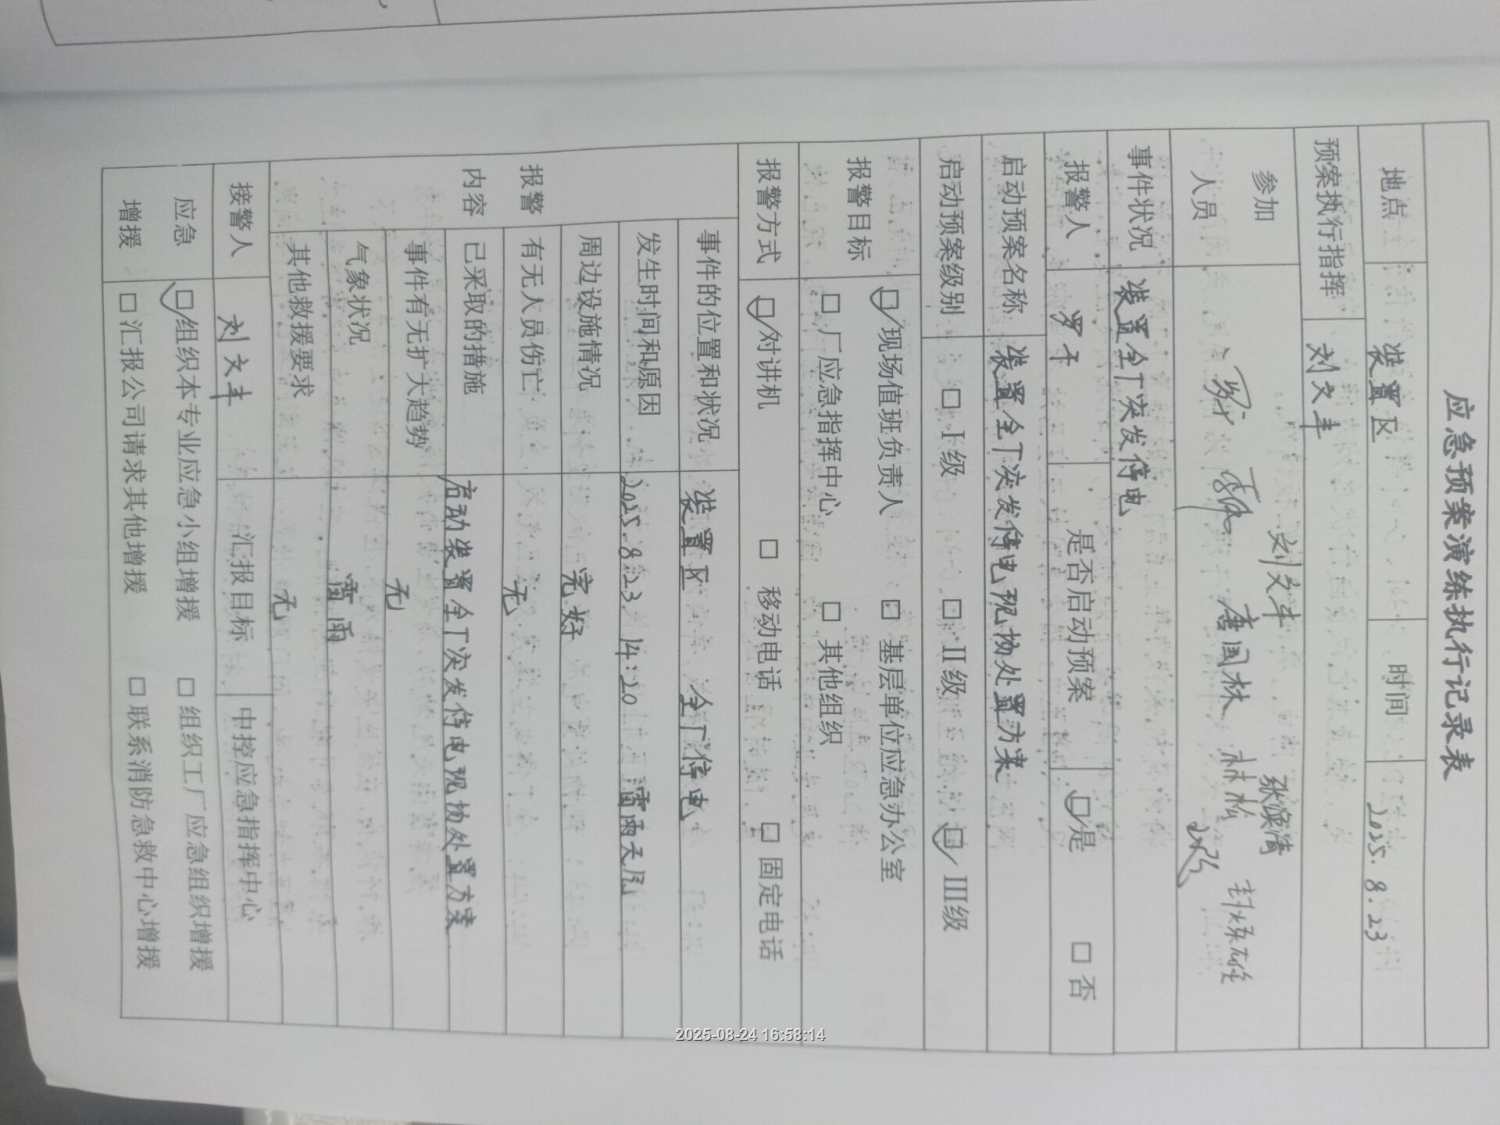 应急预案演练执行记录表
地点 装置区 时间 2025.8.23
预案执行指挥 刘文丰
参加人员 刘文丰 张滨清
唐国林 林松
事件状况 装置全厂突发停电
报警人 罗千 是否启动预案 ☑是 □否
启动预案名称 装置全厂突发停电现场处置方案
启动预案级别 □Ⅰ级 □Ⅱ级 ☑Ⅲ级
报警目标 ☑现场值班负责人 □基层单位应急办公室
□厂应急指挥中心 □其他组织
报警方式 ☑对讲机 □移动电话 □固定电话
报警内容
事件的位置和状况 装置区 全厂停电
发生时间和原因 2025.8.23 14:20 雷雨天气
周边设施情况 完好
有无人员伤亡 无
已采取的措施 启动装置全厂突发停电现场处置方案
事件有无扩大趋势 无
气象状况 雷雨
其他救援要求 无
接警人 刘文丰 汇报目标 中控应急指挥中心
应急增援 ☑组织本专业应急小组增援 □组织工厂应急组织增援
□汇报公司请求其他增援 □联系消防急救中心增援
2025-08-24 16:58:14